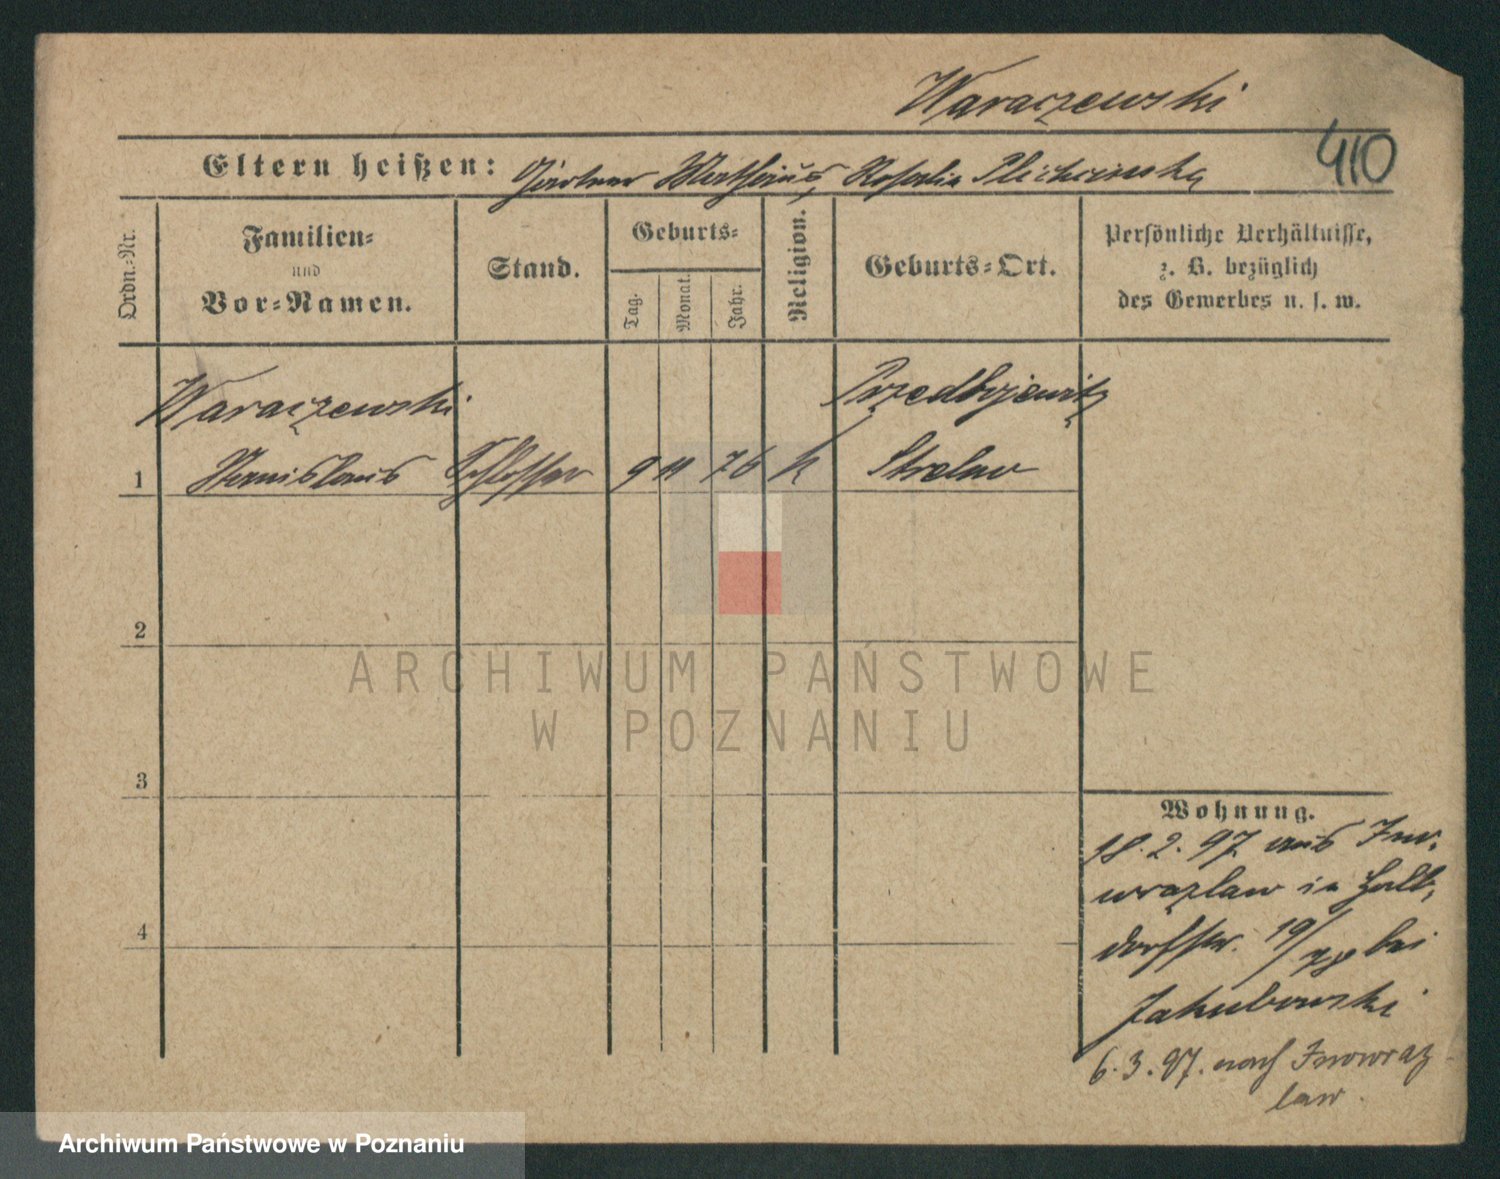 Waraczewski
410
Eltern heißen: Gärtner Matthäus, Rosalia
Ordn.-Nr.
Familien-
und
Vor-Namen.
Stand.
Geburts-
Tag.
Monat.
Jahr.
Religion.
Geburts-Ort.
Persönliche Verhältnisse,
z. B. bezüglich
des Gewerbes u. s. w.
Waraczewski
Przedbojewitz
1 Stanislaus Schlosser 9 11 76 k Strelno
2
3
4
ARCHIWUM PAŃSTWOWE
W POZNANIU
Wohnung.
18.2.97 aus Ino-
wrazlaw in Halb-
dorfstr. 19/ bei
Jakubowski
6.3.97. nach Inowraz-
law.
Archiwum Państwowe w Poznaniu